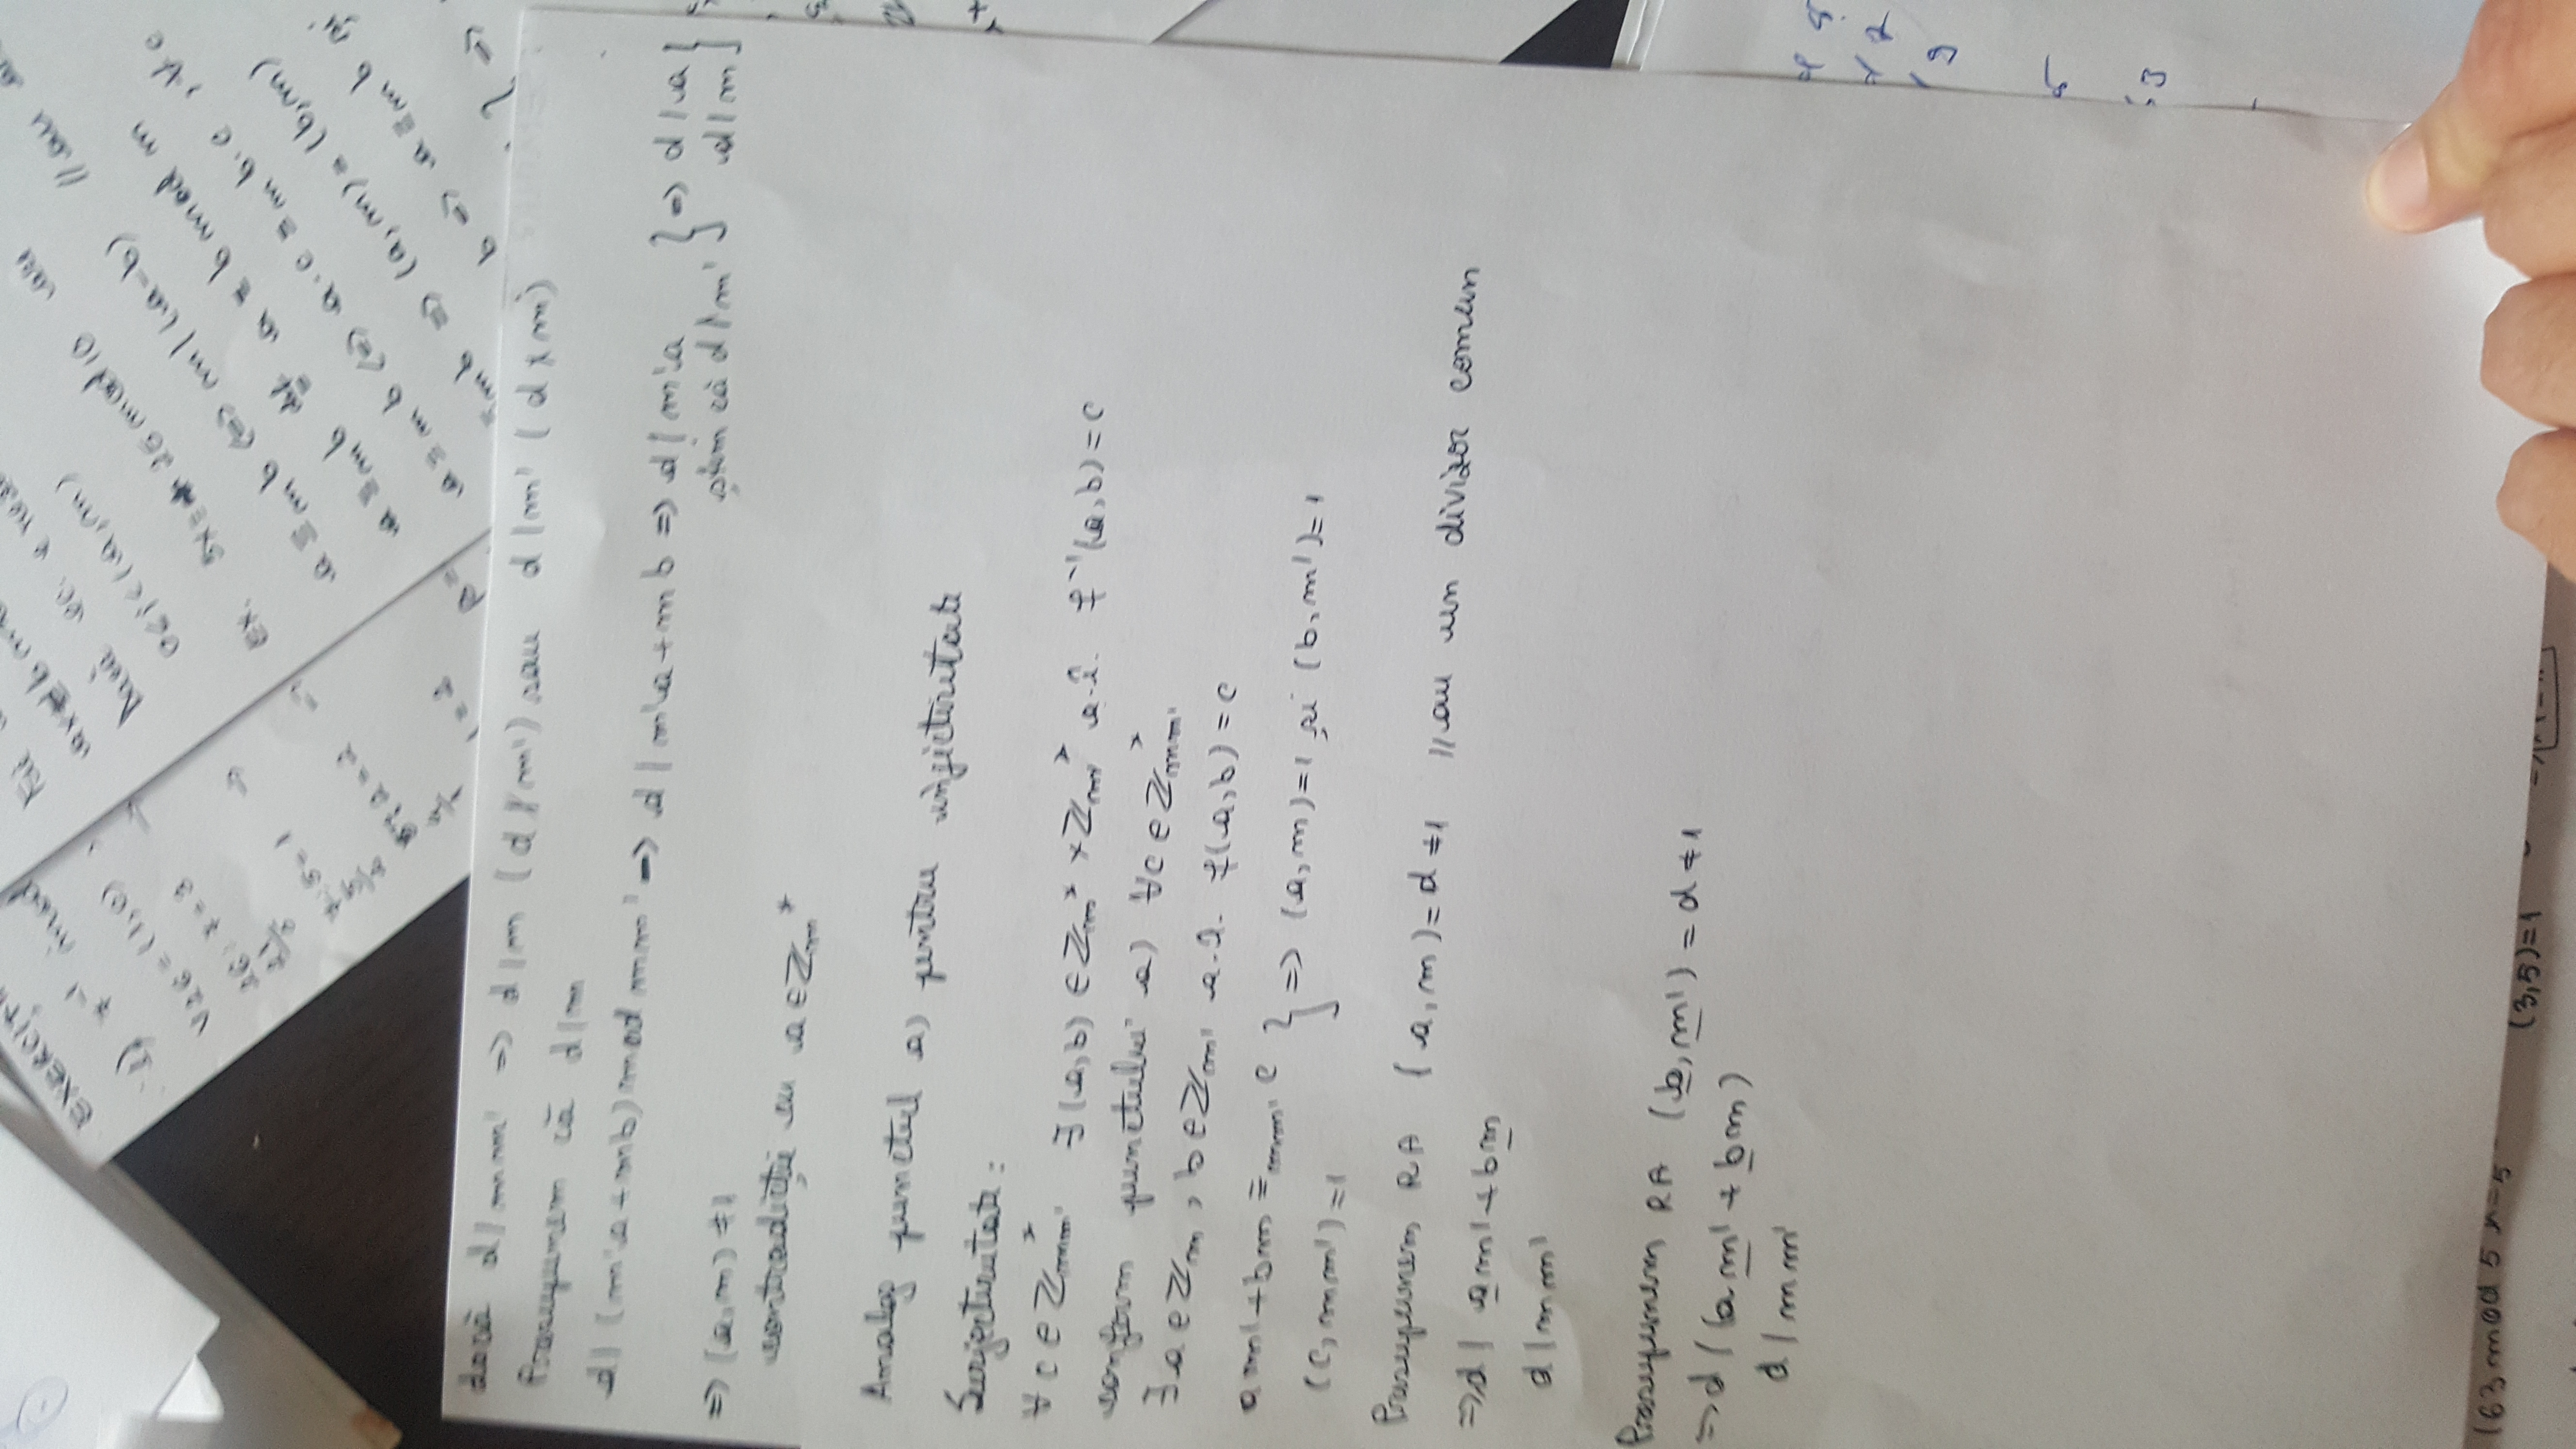 EXERCIȚI
1) 7⁻¹ mod
V26 = (1,0)
26 : 7 = 3
7 : 5 = 1
5 : 2 = 2
ax ≡ b m
Dacă ec. e
0≤i<(a,m)
Ex. 5x ≡ 26 mod 10 au
a ≡m b <=> m | (a-b) // au
a ≡m b def a ≡ b mod m
a ≡m b <=> a·c ≡m b·c , ∀ c
≡m b => (a,m) = (b,m)
b => a ≡m b și
dacă d | mm' => d | m (d ∤ m') sau d | m' (d ∤ m)
Presupunem că d | m
d | (m'a + mb) mod mm' => d | m'a + mb => d | m'a } => d | a }
știm că d ∤ m' d | m
=> (a,m) ≠ 1
contradicție cu a ∈ Zm*
Analog punctul a) pentru injectivitate
Surjectivitate :
∀ c ∈ Zmm'* ∃ (a,b) ∈ Zm* × Zm'* a.î. f⁻¹(a,b) = c
conform punctului a) ∀ c ∈ Zmm'*
∃ a ∈ Zm , b ∈ Zm' a.î. f(a,b) = c
am' + bm ≡mm' c } => (a,m) = 1 și (b,m') = 1
(c, mm') = 1
Presupunem RA (a,m) = d ≠ 1 // au un divizor comun
=> d | am' + bm
d | mm'
Presupunem RA (b,m') = d ≠ 1
=> d | (am' + bm)
d | mm'
163 mod 5
(3,5)=1